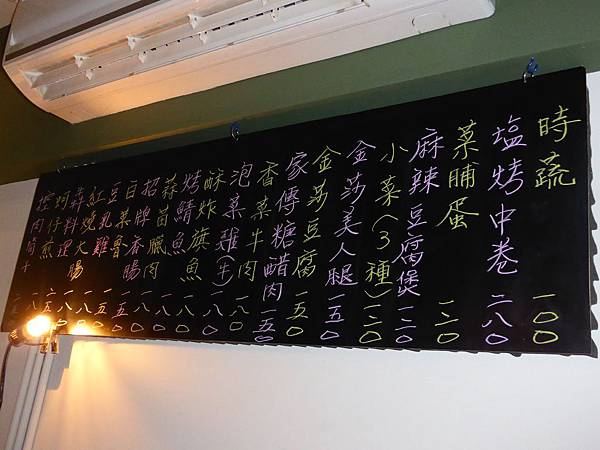 時蔬 一〇〇
塩烤中卷 二八〇
菜脯蛋 一二〇
麻辣豆腐煲 一二〇
小菜(3種) 一二〇
金莎美人腿 一五〇
金莎豆腐 一五〇
家傳糖醋肉 一五〇
香菜牛肉 一八〇
泡菜雞(牛) 一八〇
酥炸旗魚 一八〇
烤鯖魚 一八〇
蒜苗臘肉 一八〇
招牌香腸 一八〇
白菜魯 一五〇
豆乳雞 一五〇
紅燒大腸 一八〇
蒜料理
蚵仔煎
控肉筒